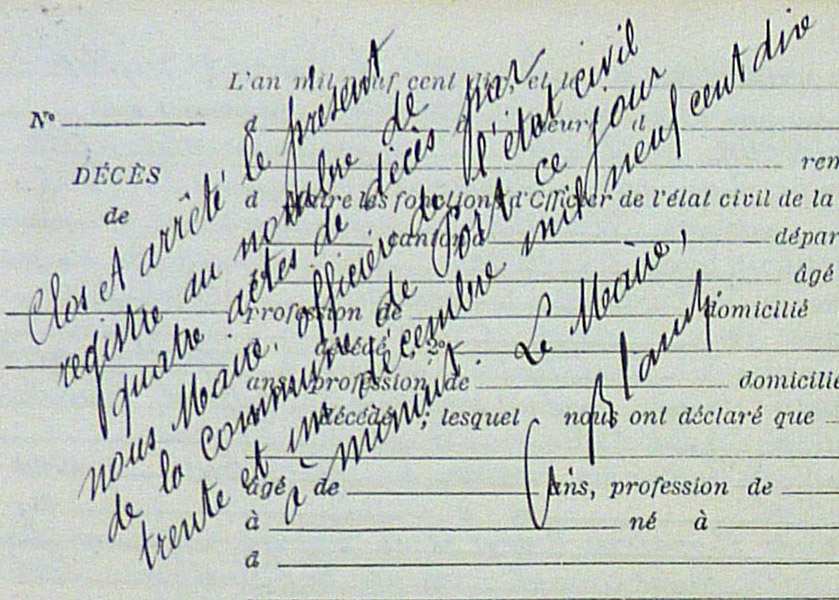 L'an mil neuf cent dix, et le
No
d heure d
DÉCÈS
ren
de
d notre les fonctions d'Officier de l'état civil de la
canton d dépar
âgé
profession de domicilié
décédé ; 2o
ans, profession de domicilié
décédé ; lesquel nous ont déclaré que
âgé de ans, profession de
à né à
d
Clos et arrêté le présent
registre au nombre de
quatre actes de décès par
nous Maire, officier de l'état civil
de la commune de Port ce jour
trente et un décembre mil neuf cent dix
à minuit. Le Maire,
Blanc